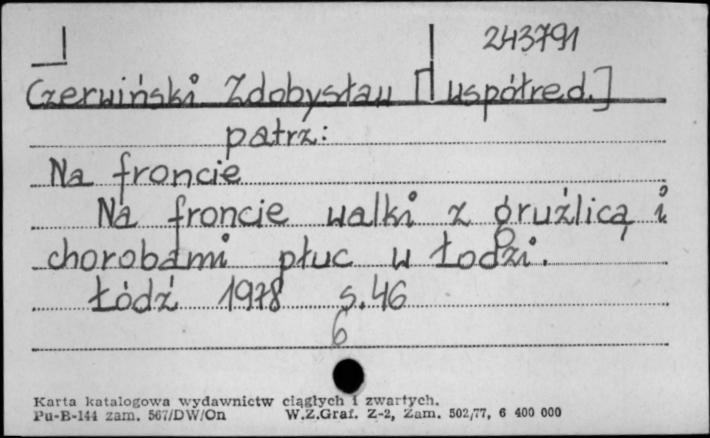 243791
Czerwiński Zdobysław [współred.]
patrz:
Na froncie
Na froncie walki z gruźlicą i
chorobami płuc w Łodzi.
Łódź 1978 s. 46
6
Karta katalogowa wydawnictw ciągłych i zwartych.
Pu-B-144 zam. 567/DW/On W.Z.Graf. Z-2, Zam. 502/77, 6 400 000